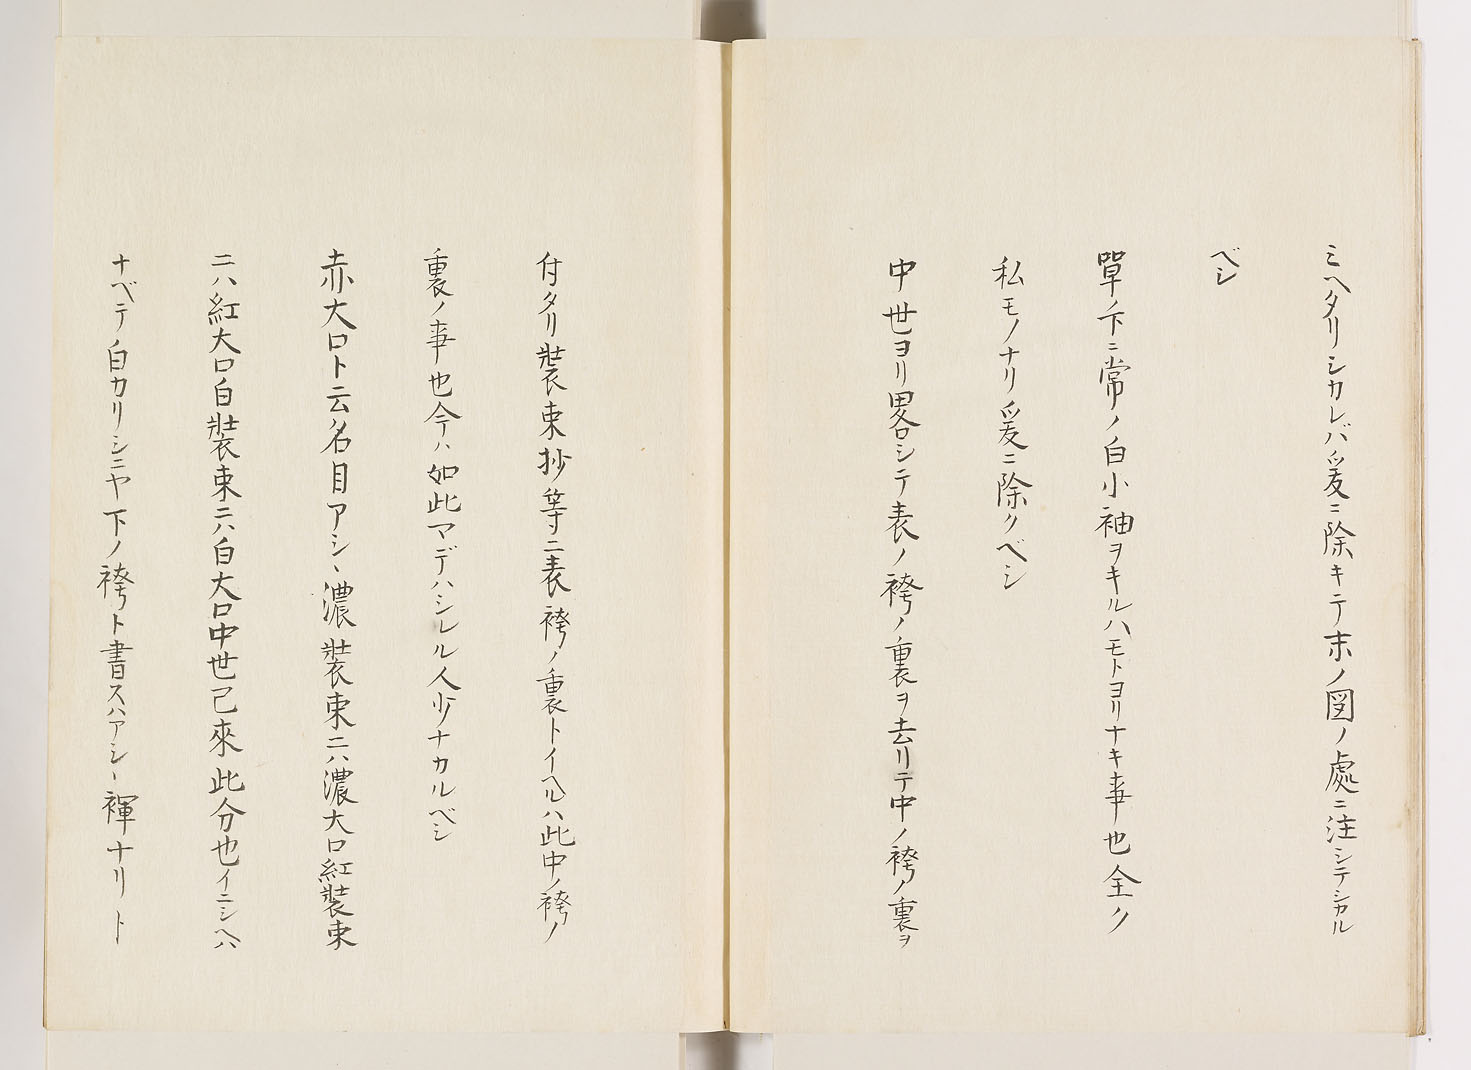 ミヘタリシカレバ爰ニ除キテ末ノ図ノ處ニ注シテシカル
ベシ
單ノ下ニ常ノ白小袖ヲキルハモトヨリナキ事也全ク
私モノナリ爰ニ除クベシ
中世ヨリ畧シテ表ノ袴ノ裏ヲ去リテ中ノ袴ノ裏ヲ
付タリ裝束抄等ニ表袴ノ裏トイヘルハ此中ノ袴ノ
裏ノ事也今ハ如此マデハシレル人少ナカルベシ
赤大口ト云名目アシヽ濃裝束ニハ濃大口紅裝束
ニハ紅大口白裝束ニハ白大口中世已來此分也イニシヘハ
ナベテノ白カリシニヤ下ノ袴ト書スハアシヽ褌ナリト